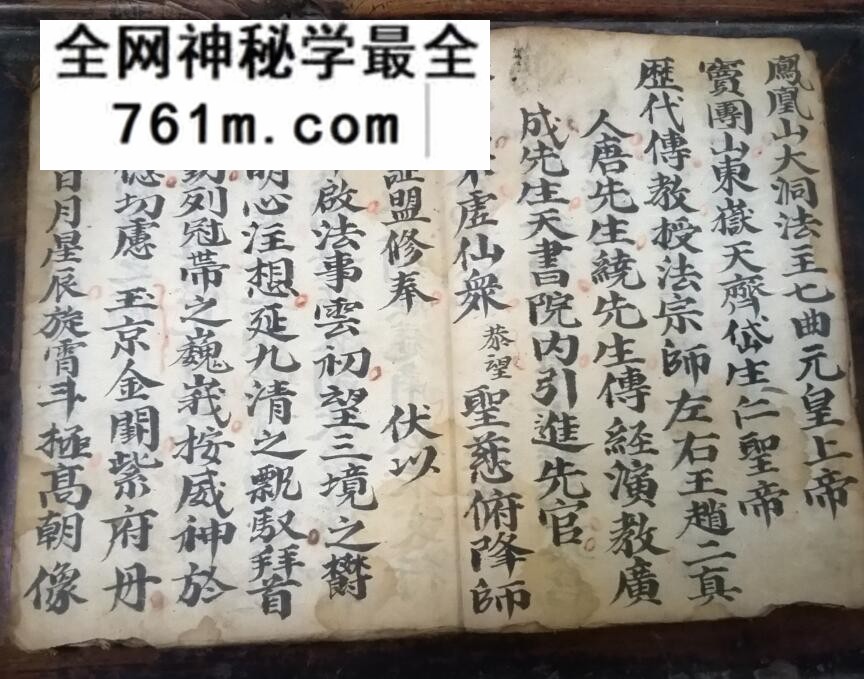 全网神秘学最全
761m.com
鳳凰山大洞法王七曲元皇上帝
竇圌山東嶽天齊岱生仁聖帝
歷代傳教授法宗師左右王趙二真
人唐先生繞先生傳經演教廣
成先生天書院内引進先官
虛仙眾 恭望 聖慈俯降師
盟修奉 伏以
啟法事雲初望三境之欝
明心注想延九清之飄馭拜首
列冠帶之巍峩按威神於
切慮 玉京金闕紫府丹
日月星辰旋霄斗極高朝像